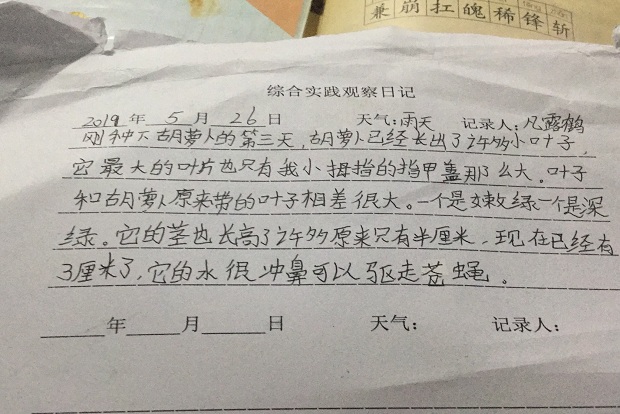 兼崩扛魄稀锋斩
综合实践观察日记
2019年5月26日 天气:雨天 记录人:凡露鹤
刚种下胡萝卜的第三天,胡萝卜已经长出了许多小叶子,
它最大的叶片也只有我小拇指的指甲盖那么大。叶子
和胡萝卜原来带的叶子相差很大。一个是嫩绿一个是深
绿。它的茎也长高了许多原来只有半厘米,现在已经有
3厘米了,它的水很冲鼻可以驱走苍蝇。
年 月 日 天气: 记录人: